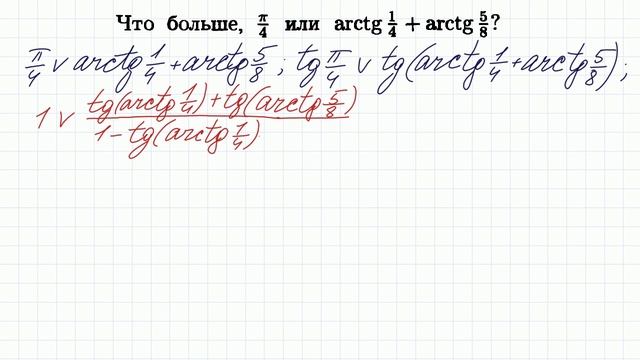 Что больше, π/4 или arctg 1/4 + arctg 5/8?
π/4 ∨ arctg 1/4 + arctg 5/8 ; tg π/4 ∨ tg(arctg 1/4 + arctg 5/8) ;
1 ∨ (tg(arctg 1/4) + tg(arctg 5/8))/(1 - tg(arctg 1/4))